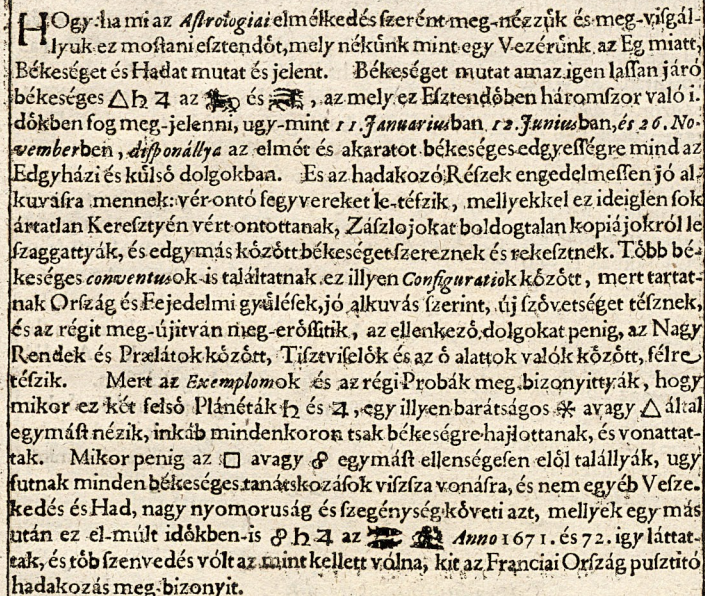 HOgy-ha mi az Aſtrologiai elmélkedés ſzerént meg-nézzük és meg-viſgál-
lyuk ez moſtani eſztendöt, mely nékünk mint egy Vezérünk az Eg miatt,
Békeséget és Hadat mutat és jelent. Békeséget mutat amaz igen laſſan járó
békeséges △ ♄ ♃ az ♐ és ♌, az mely ez Eſztendöben háromſzor való i-
dökben fog meg-jelenni, ugy-mint 11. Januariusban 12. Juniusban, és 26. No-
vemberben, diſponállya az elmét és akaratot békeséges edgyeſſégre mind az
Edgyházi és külsö dolgokban. Es az hadakozó Réſzek engedelmeſſen jó al-
kuváſra mennek: vér-ontó fegyvereket le-téſzik, mellyekkel ez ideiglen ſok
ártatlan Kereſztyén vért ontottanak, Záſzlojokat boldogtalan kopiájokról le
ſzaggattyák, és edgymás között békeséget ſzereznek és rekeſztnek. Több bé-
keséges conventusok-is találtatnak ez illyen Configuratiok között, mert tartat-
nak Orſzág és Fejedelmi gyüléſek, jó alkuvás ſzerint, új ſzövetséget téſznek,
és az régit meg-újitván meg-eröſſitik, az ellenkezö dolgokat penig, az Nagy
Rendek és Prælátok között, Tiſztviſelök és az ö alattok valók között, félre
téſzik. Mert az Exemplomok és az régi Probák meg bizonyittyák, hogy
mikor ez két felsö Plánéták ♄ és ♃, egy illyen barátságos ⚹ avagy △ által
egymáſt nézik, inkáb mindenkoron tsak békeségre hajlottanak, és vonattat-
tak. Mikor penig az □ avagy ☍ egymáſt ellenségeſen elöl talállyák, ugy
futnak minden békeséges tanátskozáſok viſzſza vonáſra, és nem egyéb Veſze-
kedés és Had, nagy nyomoruság és ſzegénység követi azt, mellyek egy más
után ez el-múlt idökben-is ☍ ♄ ♃ az Anno 1671. és 72. igy láttat-
tak, és töb ſzenvedés vólt az mint kellett vólna, kit az Franciai Orſzág puſztitó
hadakozás meg-bizonyit.